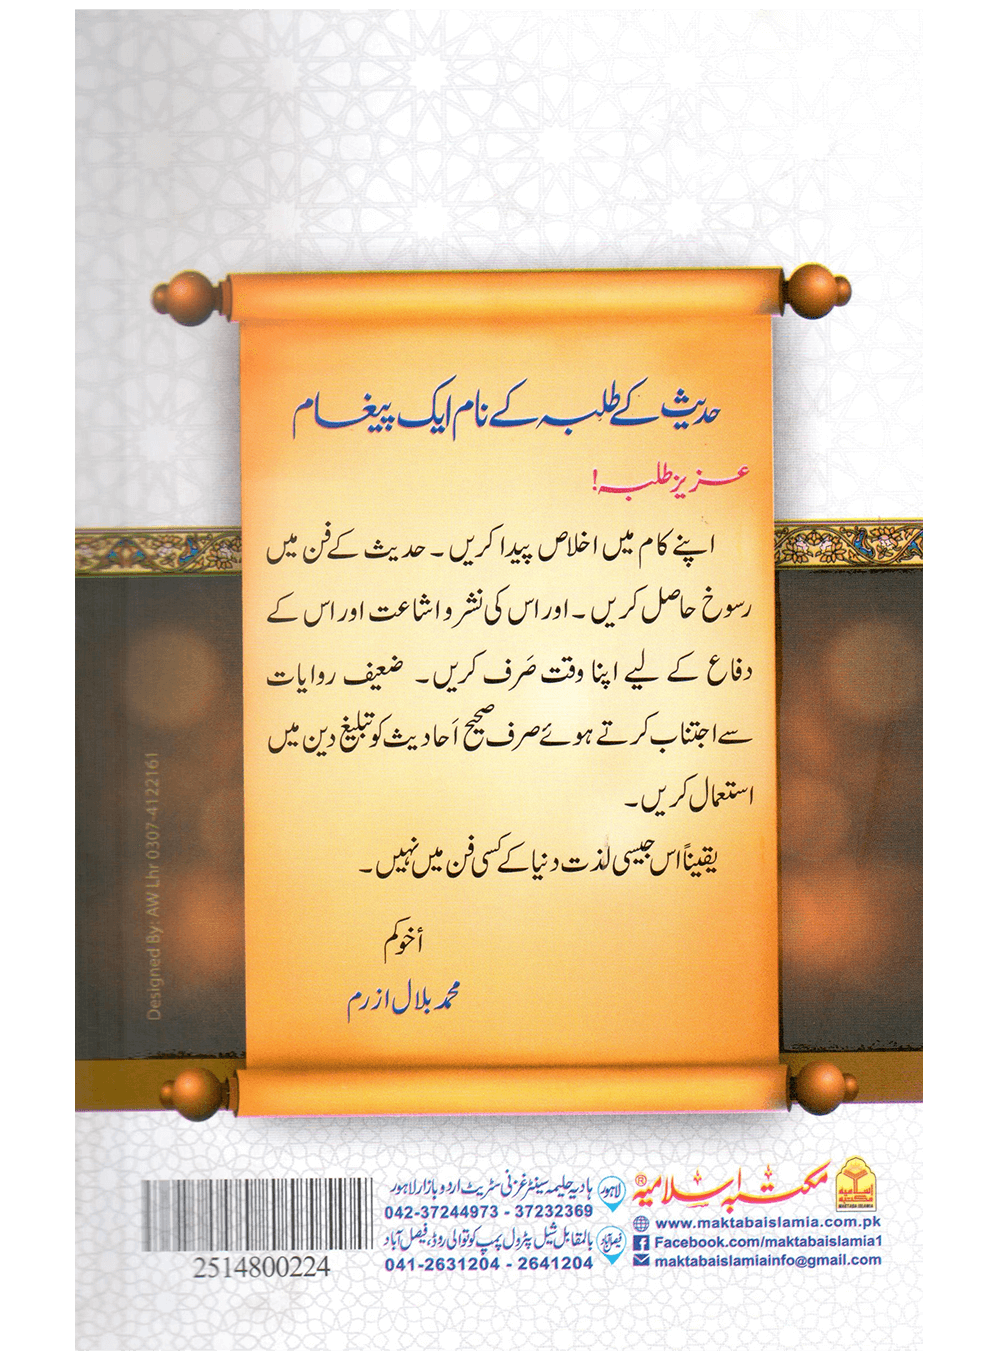 حدیث کے طلبہ کے نام ایک پیغام
عزیز طلبہ!
اپنے کام میں اخلاص پیدا کریں۔ حدیث کے فن میں
رسوخ حاصل کریں۔ اور اس کی نشر و اشاعت اور اس کے
دفاع کے لیے اپنا وقت صَرف کریں۔ ضعیف روایات
سے اجتناب کرتے ہوئے صرف صحیح اَحادیث کو تبلیغ دین میں
استعمال کریں۔
یقیناً اس جیسی لذت دنیا کے کسی فن میں نہیں۔
أخوکم
محمد بلال ازرم
Designed By: AW Lhr 0307-4122161
اسلامیہ
مکتبہ
MAKTABA ISLAMIA
مکتبہ اسلامیہ®
www.maktabaislamia.com.pk
Facebook.com/maktabaislamia1
maktabaislamiainfo@gmail.com
لاہور
ہادیہ حلیمہ سینٹر غزنی سٹریٹ اردو بازار لاہور
042-37244973 - 37232369
فیصل آباد
بالمقابل شیل پٹرول پمپ کوتوالی روڈ، فیصل آباد
041-2631204 - 2641204
2514800224